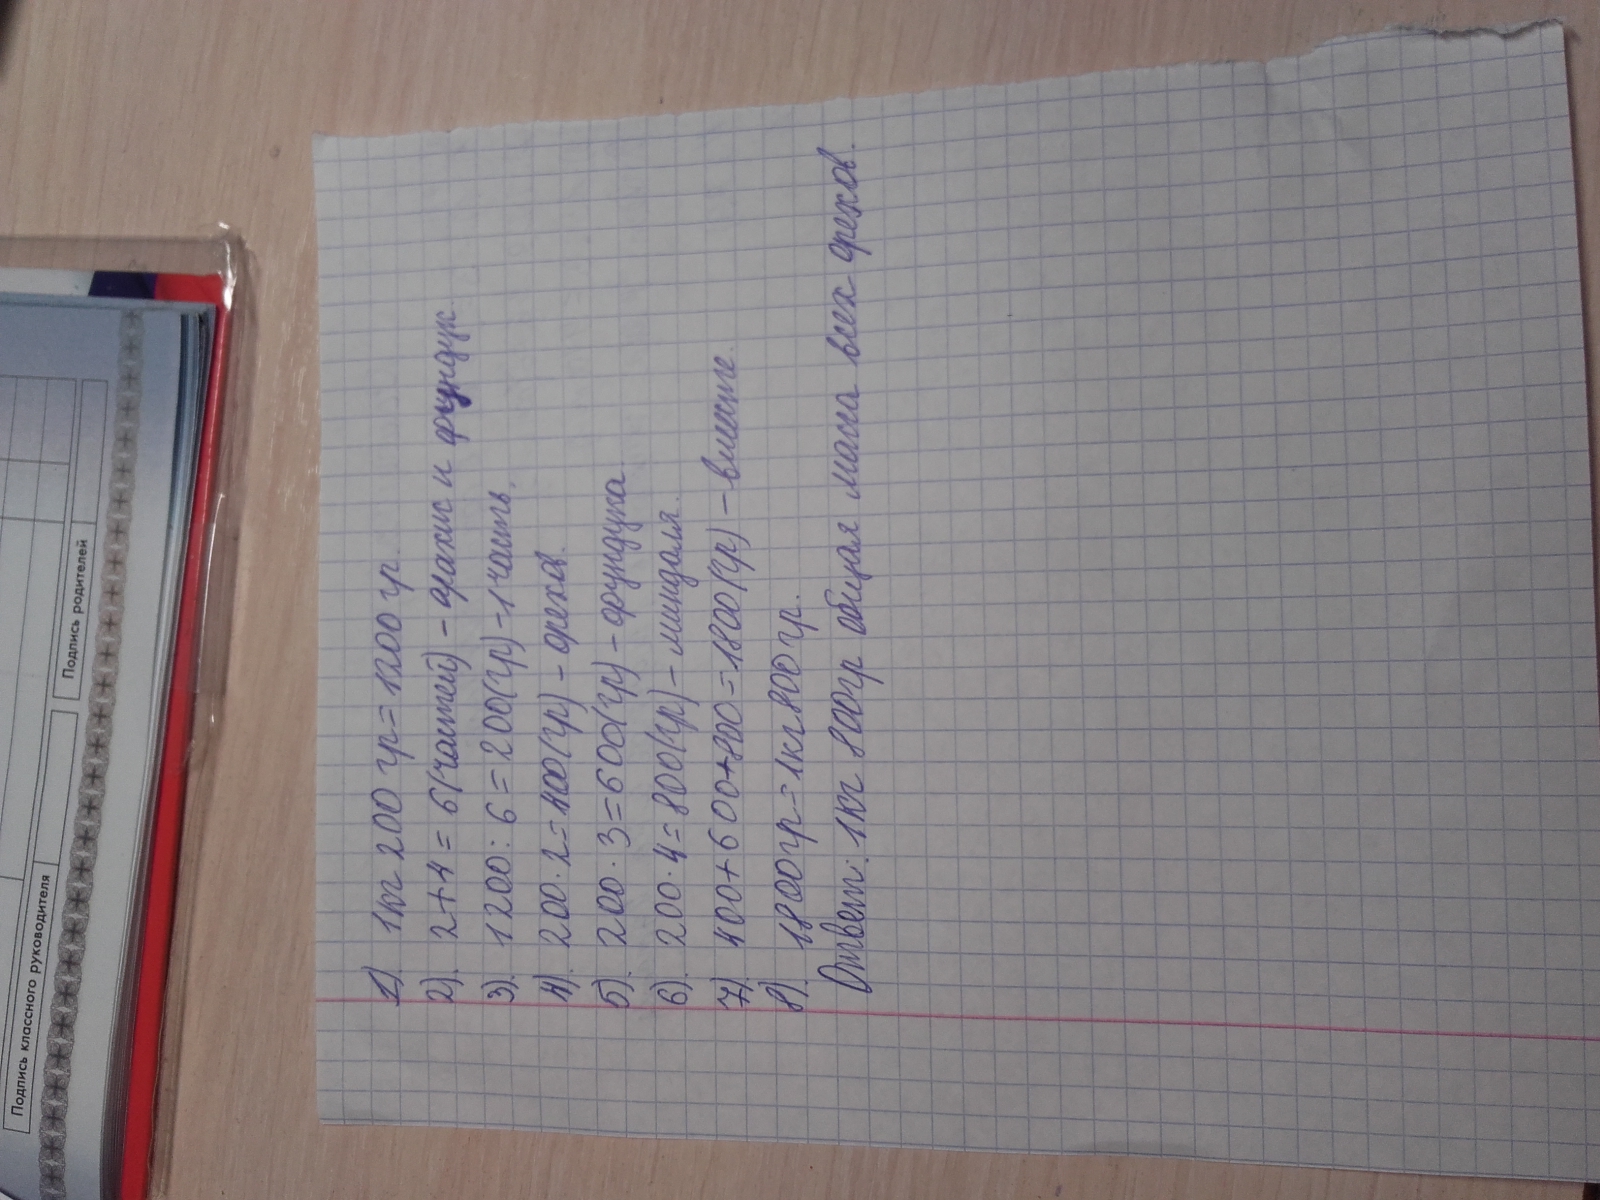 1). 1кг 200 гр = 1200 гр.
2). 2+4 = 6(частей) - арахис и фундук
3). 1200 : 6 = 200(гр) - 1 часть.
4). 200 · 2 = 400(гр) - орехов.
5). 200 · 3 = 600(гр) - фундука
6). 200 · 4 = 800(гр) - миндаля.
7). 400+600+800 = 1800(гр) - вместе.
8). 1800гр = 1кг 800гр.
Ответ: 1кг 800гр общая масса всех орехов.
Подпись классного руководителя
Подпись родителей